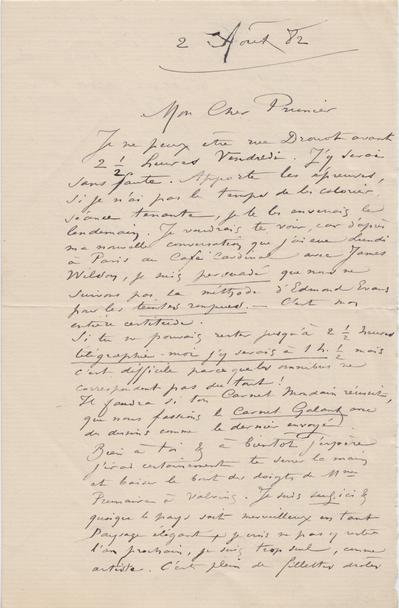 2 Août 82
Mon Cher Prunier
Je ne peux être rue Drouot avant
2 1/2 heures Vendredi. J'y serai
sans faute. Apporte les épreuves,
si je n'ai pas le temps de les colorier
séance tenante, je te les enverrai le
lendemain. Je voudrais te voir, car d'après
ma nouvelle conversation que j'ai eue Lundi
à Paris au Café Cardinal avec James
Wilson, je suis persuadé que nous ne
suivons pas la méthode d'Edmond Evans
pour les teintes rompues. — C'est mon
entière certitude.
Si tu ne pouvais rester jusqu'à 2 1/2 heures
télégraphie-moi j'y serais à 1 h. 1/2 mais
c'est difficile parce que les omnibus ne
correspondent pas du tout!
Il faudra si ton Carnet Mondain réussit,
que nous fassions le Carnet Galant avec
des dessins comme le dernier envoyé.
Bien à toi & à bientôt j'espère
j'irai certainement te serrer la main
et baiser le bout des doigts de Mme
à
Je suis ici &
quoique le pays soit merveilleux en tant
Paysage élégant je crois ne pas y rester
l'an prochain, je suis trop seul, comme
artiste. C'est plein de fillettes